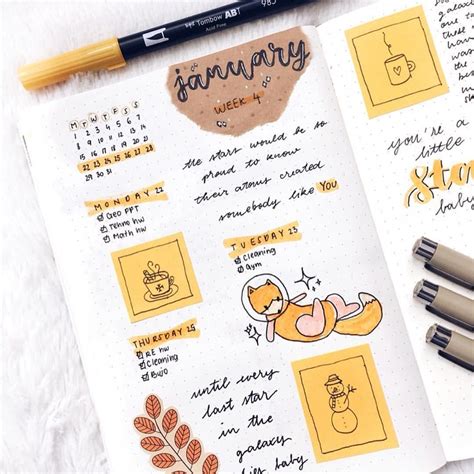 Tombow ABT
Acid Free
985
january
WEEK 4
M T W T F S S
1 2 3 4 5 6 7
8 9 10 11 12 13 14
15 16 17 18 19 20 21
22 23 24 25 26 27 28
29 30 31
the stars would be so
proud to know
their atoms created
somebody like YOU
MONDAY 22
Geo PPT
Tehno hw
Math hw
TUESDAY 23
Cleaning
Gym
THURSDAY 25
RE hw
Cleaning
Bujo
until every
last star
in the
galaxy
dies baby
galaxy
you're a
little
baby